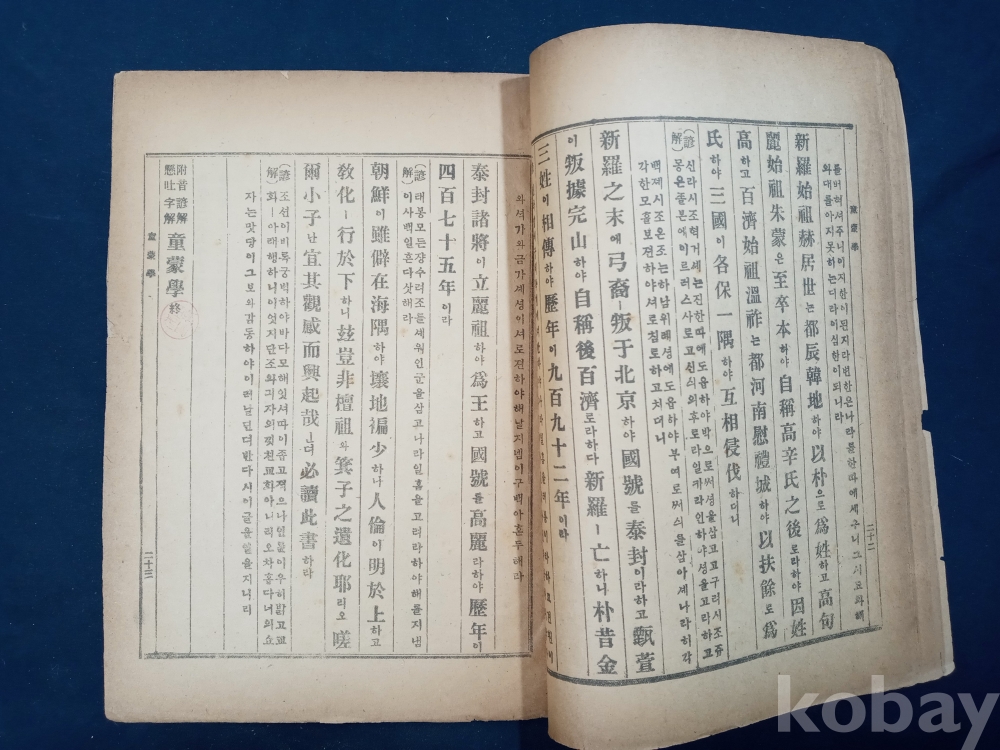 童蒙學
二十二
를버려셔주니이지삼이된지라변한은나라를한따에세우니그시죠와해
와대를아지못하는디라이심한이되니라
新羅始祖赫居世는都辰韓地하야以朴으로爲姓하고高句
麗始祖朱蒙은至卒本하야自稱高辛氏之後로라하야因姓
高하고百濟始祖溫祚는都河南慰禮城하야以扶餘로爲
氏하야三國이各保一隅하야互相侵伐하더니
(諺解)신라시조혁거셰는진한따에도읍하야박으로써셩을삼고고구려시조쥬
몽은졸본에이르러스사로고신씨의후로라일카라인하야셩을고라하고
백졔시조온조는하남위례셩에도읍하야부여로써씨를삼아셰나라히각
각한모흘보젼하야셔로침로하고치더니
新羅之末에弓裔ㅣ叛于北京하야國號를泰封이라하고甄萱
이叛據完山하야自稱後百濟로라하다新羅ㅣ亡하니朴昔金
三姓이相傳하야歷年이九百九十二年이라
와셕가와금가셰셩이셔로젼하야해날지냄이구백아흔두해라
泰封諸將이立麗祖하야爲王하고國號를高麗라하야歷年이
四百七十五年이라
(諺解)태봉모든쟝수려조를세워인군을삼고나라일홈을고려라하야해를지냄
이사백일흔다삿해라
朝鮮이雖僻在海隅하야壤地褊少하나人倫이明於上하고
敎化ㅣ行於下하니玆豈非檀祖와箕子之遺化耶리오嗟
爾小子난宜其觀感而興起哉ㄴ뎌必讀此書하라
(諺解)조선이비록궁벽하야바다모해잇셔따이쥬고젹으나인륜이우희밝고교
화ㅣ아래행하니이엇지단조와긔자의낏친교화아니리오차흡다너의쇼
자는맛당이그보와감동하야이러날딘뎌반다시이글을일을지니라
附音諺解
懸吐字解
童蒙學終
童蒙學
二十三
kobay